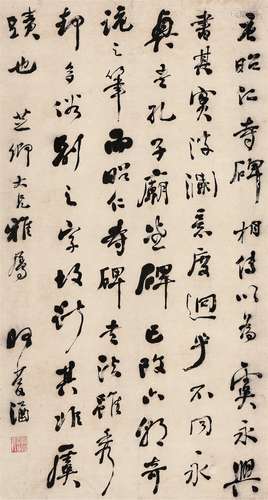 昭仁寺碑相傳以為虞永興
書其實意度迥乎不同永
興書孔子廟堂碑已改六朝奇
詭之筆而昭仁寺碑書法雖秀
却多俗別之字故斷其非虞
蹟也 芝卿大兄雅屬